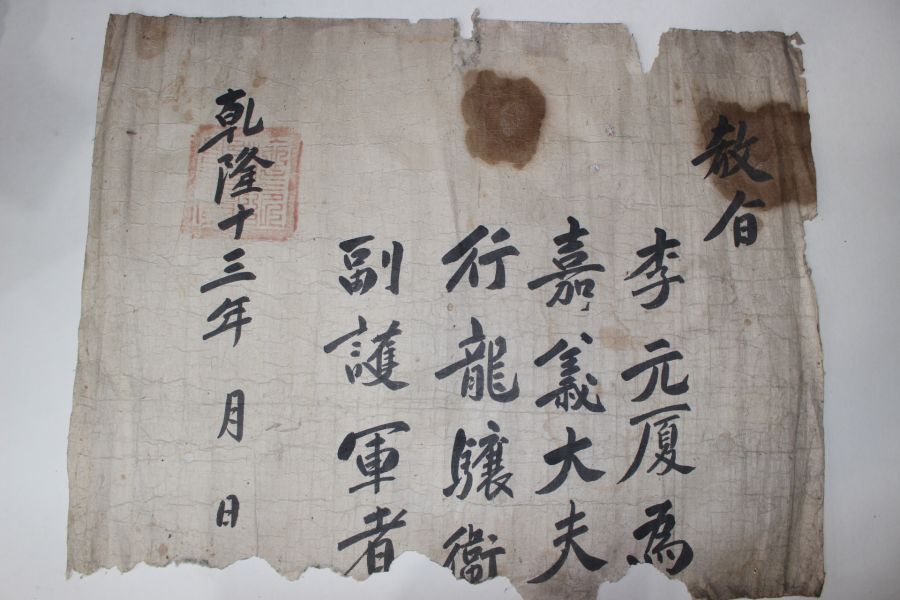 教旨
李元厦為
嘉義大夫
行龍驤衛
副護軍者
乾隆十三年 月 日